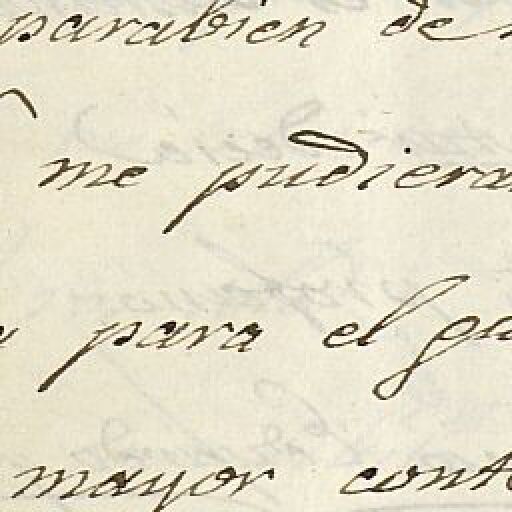 parabien de
me pudiera
para el ga
mayor cont